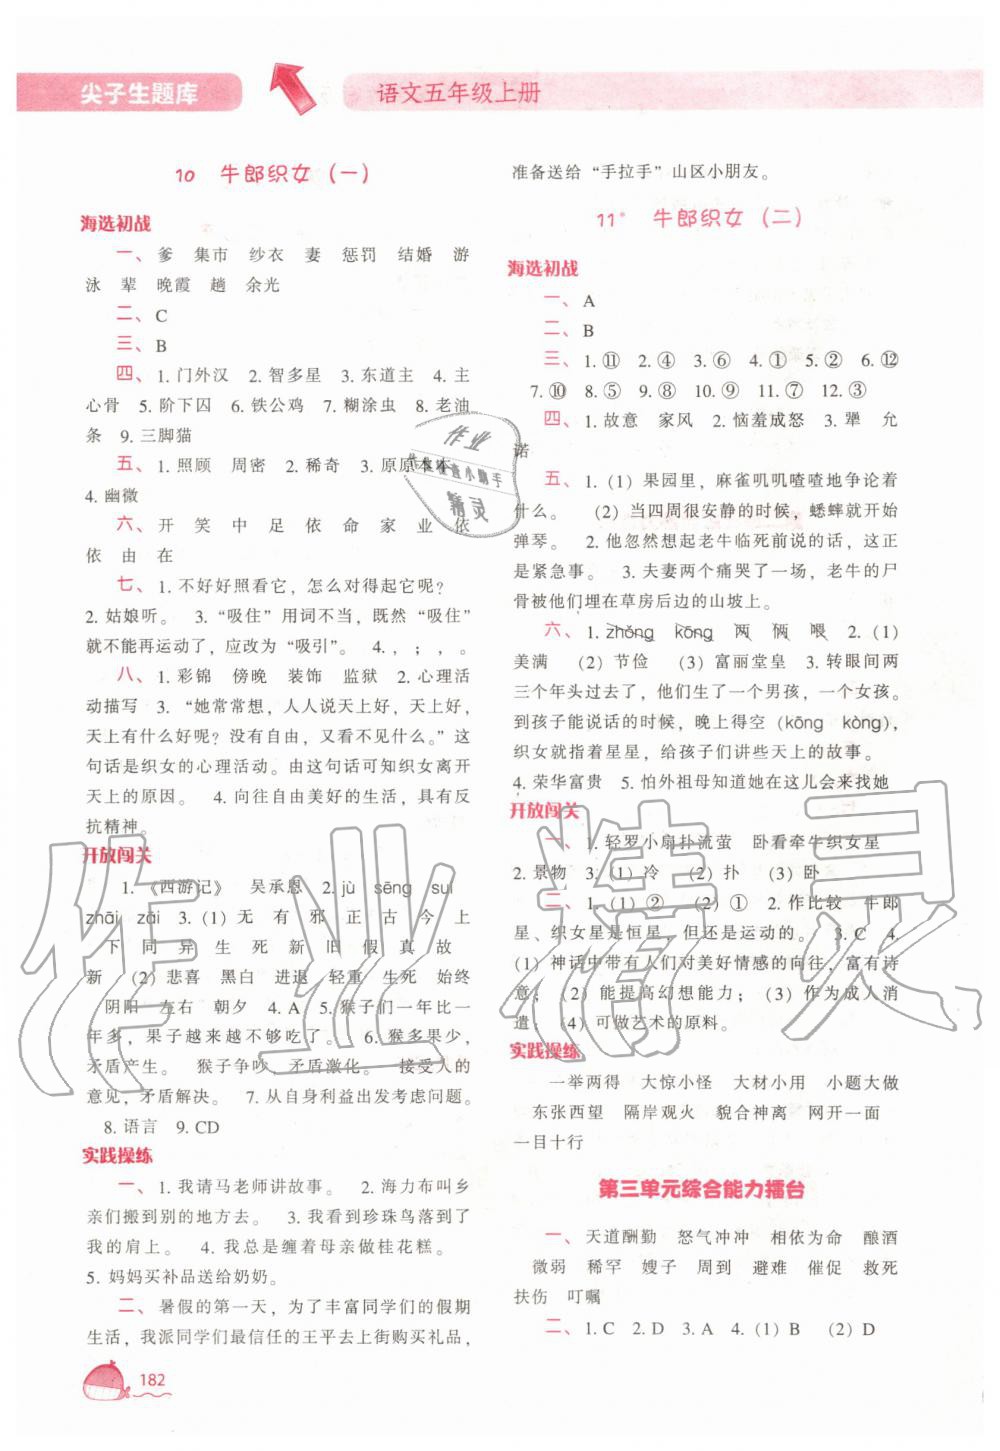 尖子生题库
语文五年级上册
10 牛郎织女（一）
海选初战
一、爹 集市 纱衣 妻 惩罚 结婚 游
泳 辈 晚霞 趟 余光
二、C
三、B
四、1. 门外汉 2. 智多星 3. 东道主 4. 主
心骨 5. 阶下囚 6. 铁公鸡 7. 糊涂虫 8. 老油
条 9. 三脚猫
五、1. 照顾 周密 2. 稀奇 3. 原原本本
4. 幽微
六、开 笑 中 足 依 命 家 业 依
依 由 在
七、1. 不好好照看它，怎么对得起它呢？
2. 姑娘听。 3. “吸住”用词不当，既然“吸住”
就不能再运动了，应改为“吸引”。 4. ，；，。
八、1. 彩锦 傍晚 装饰 监狱 2. 心理活
动描写 3. “她常常想，人人说天上好，天上好，
天上有什么好呢？没有自由，又看不见什么。”这
句话是织女的心理活动。由这句话可知织女离开
天上的原因。 4. 向往自由美好的生活，具有反
抗精神。
开放闯关
1. 《西游记》 吴承恩 2. jù sēng suí
zhāi zāi 3. (1) 无 有 邪 正 古 今 上
下 同 异 生 死 新 旧 假 真 故
新 (2) 悲喜 黑白 进退 轻重 生死 始终
阴阳 左右 朝夕 4. A 5. 猴子们一年比一
年多，果子越来越不够吃了。 6. 猴多果少，
矛盾产生。 猴子争吵，矛盾激化。 接受人的
意见，矛盾解决。 7. 从自身利益出发考虑问题。
8. 语言 9. CD
实践操练
一、1. 我请马老师讲故事。 2. 海力布叫乡
亲们搬到别的地方去。 3. 我看到珍珠鸟落到了
我的肩上。 4. 我总是缠着母亲做桂花糕。
5. 妈妈买补品送给奶奶。
二、暑假的第一天，为了丰富同学们的假期
生活，我派同学们最信任的王平去上街购买礼品，
182
准备送给“手拉手”山区小朋友。
11* 牛郎织女（二）
海选初战
一、A
二、B
三、1. ⑪ 2. ④ 3. ⑥ 4. ① 5. ② 6. ⑫
7. ⑩ 8. ⑤ 9. ⑧ 10. ⑨ 11. ⑦ 12. ③
四、1. 故意 家风 2. 恼羞成怒 3. 犟 允
诺
五、1. (1) 果园里，麻雀叽叽喳喳地争论着
什么。 (2) 当四周很安静的时候，蟋蟀就开始
弹琴。 2. 他忽然想起老牛临死前说的话，这正
是紧急事。 3. 夫妻两个痛哭了一场，老牛的尸
骨被他们埋在草房后边的山坡上。
六、1. zhǒng kōng 两 俩 喂 2. (1)
美满 (2) 节俭 (3) 富丽堂皇 3. 转眼间两
三个年头过去了，他们生了一个男孩，一个女孩。
到孩子能说话的时候，晚上得空 (kōng kòng)，
织女就指着星星，给孩子们讲些天上的故事。
4. 荣华富贵 5. 怕外祖母知道她在这儿会来找她
开放闯关
一、1. 轻罗小扇扑流萤 卧看牵牛织女星
2. 景物 3. (1) 冷 (2) 扑 (3) 卧
二、1. (1) ② (2) ① 2. 作比较 牛郎
星、织女星是恒星，但还是运动的。 3. C 4.
(1) 神话中带有人们对美好情感的向往，富有诗
意；(2) 能提高幻想能力；(3) 作为成人消
遣；(4) 可做艺术的原料。
实践操练
一举两得 大惊小怪 大材小用 小题大做
东张西望 隔岸观火 貌合神离 网开一面
一目十行
第三单元综合能力擂台
一、天道酬勤 怒气冲冲 相依为命 酿酒
微弱 稀罕 嫂子 周到 避难 催促 救死
扶伤 叮嘱
二、1. C 2. D 3. A 4. (1) B (2) D
作业精灵